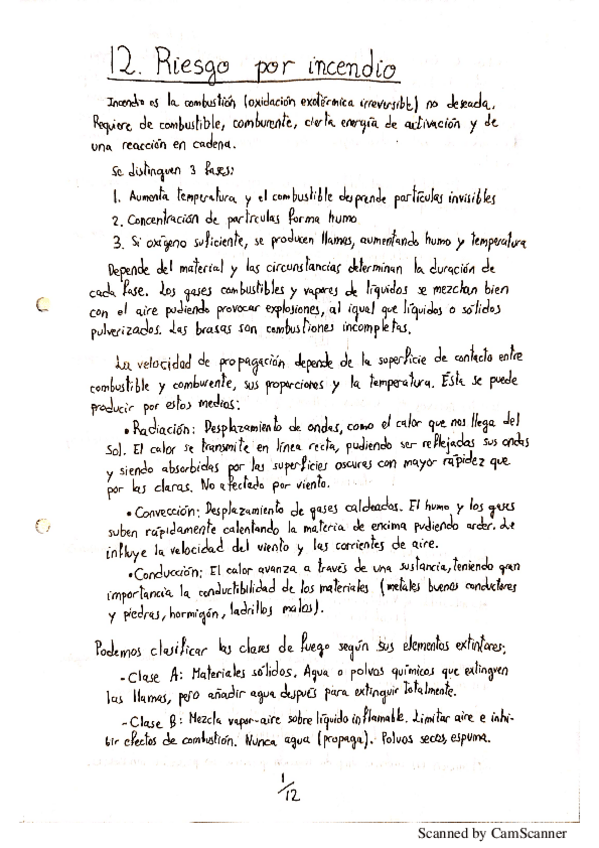 12. Riesgo por incendio
Incendio es la combustión (oxidación exotérmica irreversible) no deseada.
Requiere de combustible, comburente, cierta energía de activación y de
una reacción en cadena.
Se distinguen 3 fases:
1. Aumenta temperatura y el combustible desprende partículas invisibles
2. Concentración de partículas forma humo
3. Si oxígeno suficiente, se producen llamas, aumentando humo y temperatura
Depende del material y las circunstancias determinan la duración de
cada fase. Los gases combustibles y vapores de líquidos se mezclan bien
con el aire pudiendo provocar explosiones, al igual que líquidos o sólidos
pulverizados. Las brasas son combustiones incompletas.
La velocidad de propagación depende de la superficie de contacto entre
combustible y comburente, sus proporciones y la temperatura. Esta se puede
producir por estos medios:
• Radiación: Desplazamiento de ondas, como el calor que nos llega del
Sol. El calor se transmite en línea recta, pudiendo ser reflejadas sus ondas
y siendo absorbidas por las superficies oscuras con mayor rápidez que
por las claras. No afectado por viento.
• Convección: Desplazamiento de gases caldeados. El humo y los gases
suben rápidamente calentando la materia de encima pudiendo arder. Le
influye la velocidad del viento y las corrientes de aire.
• Conducción: El calor avanza a través de una sustancia, teniendo gran
importancia la conductibilidad de los materiales (metales buenos conductores
y piedras, hormigón, ladrillos malos).
Podemos clasificar las clases de fuego según sus elementos extintores:
- Clase A: Materiales sólidos. Agua o polvos químicos que extinguen
las llamas, pero añadir agua después para extinguir totalmente.
- Clase B: Mezcla vapor-aire sobre líquido inflamable. Limitar aire e inhi-
bir efectos de combustión. Nunca agua (propaga). Polvos secos, espuma.
1/12
Scanned by CamScanner